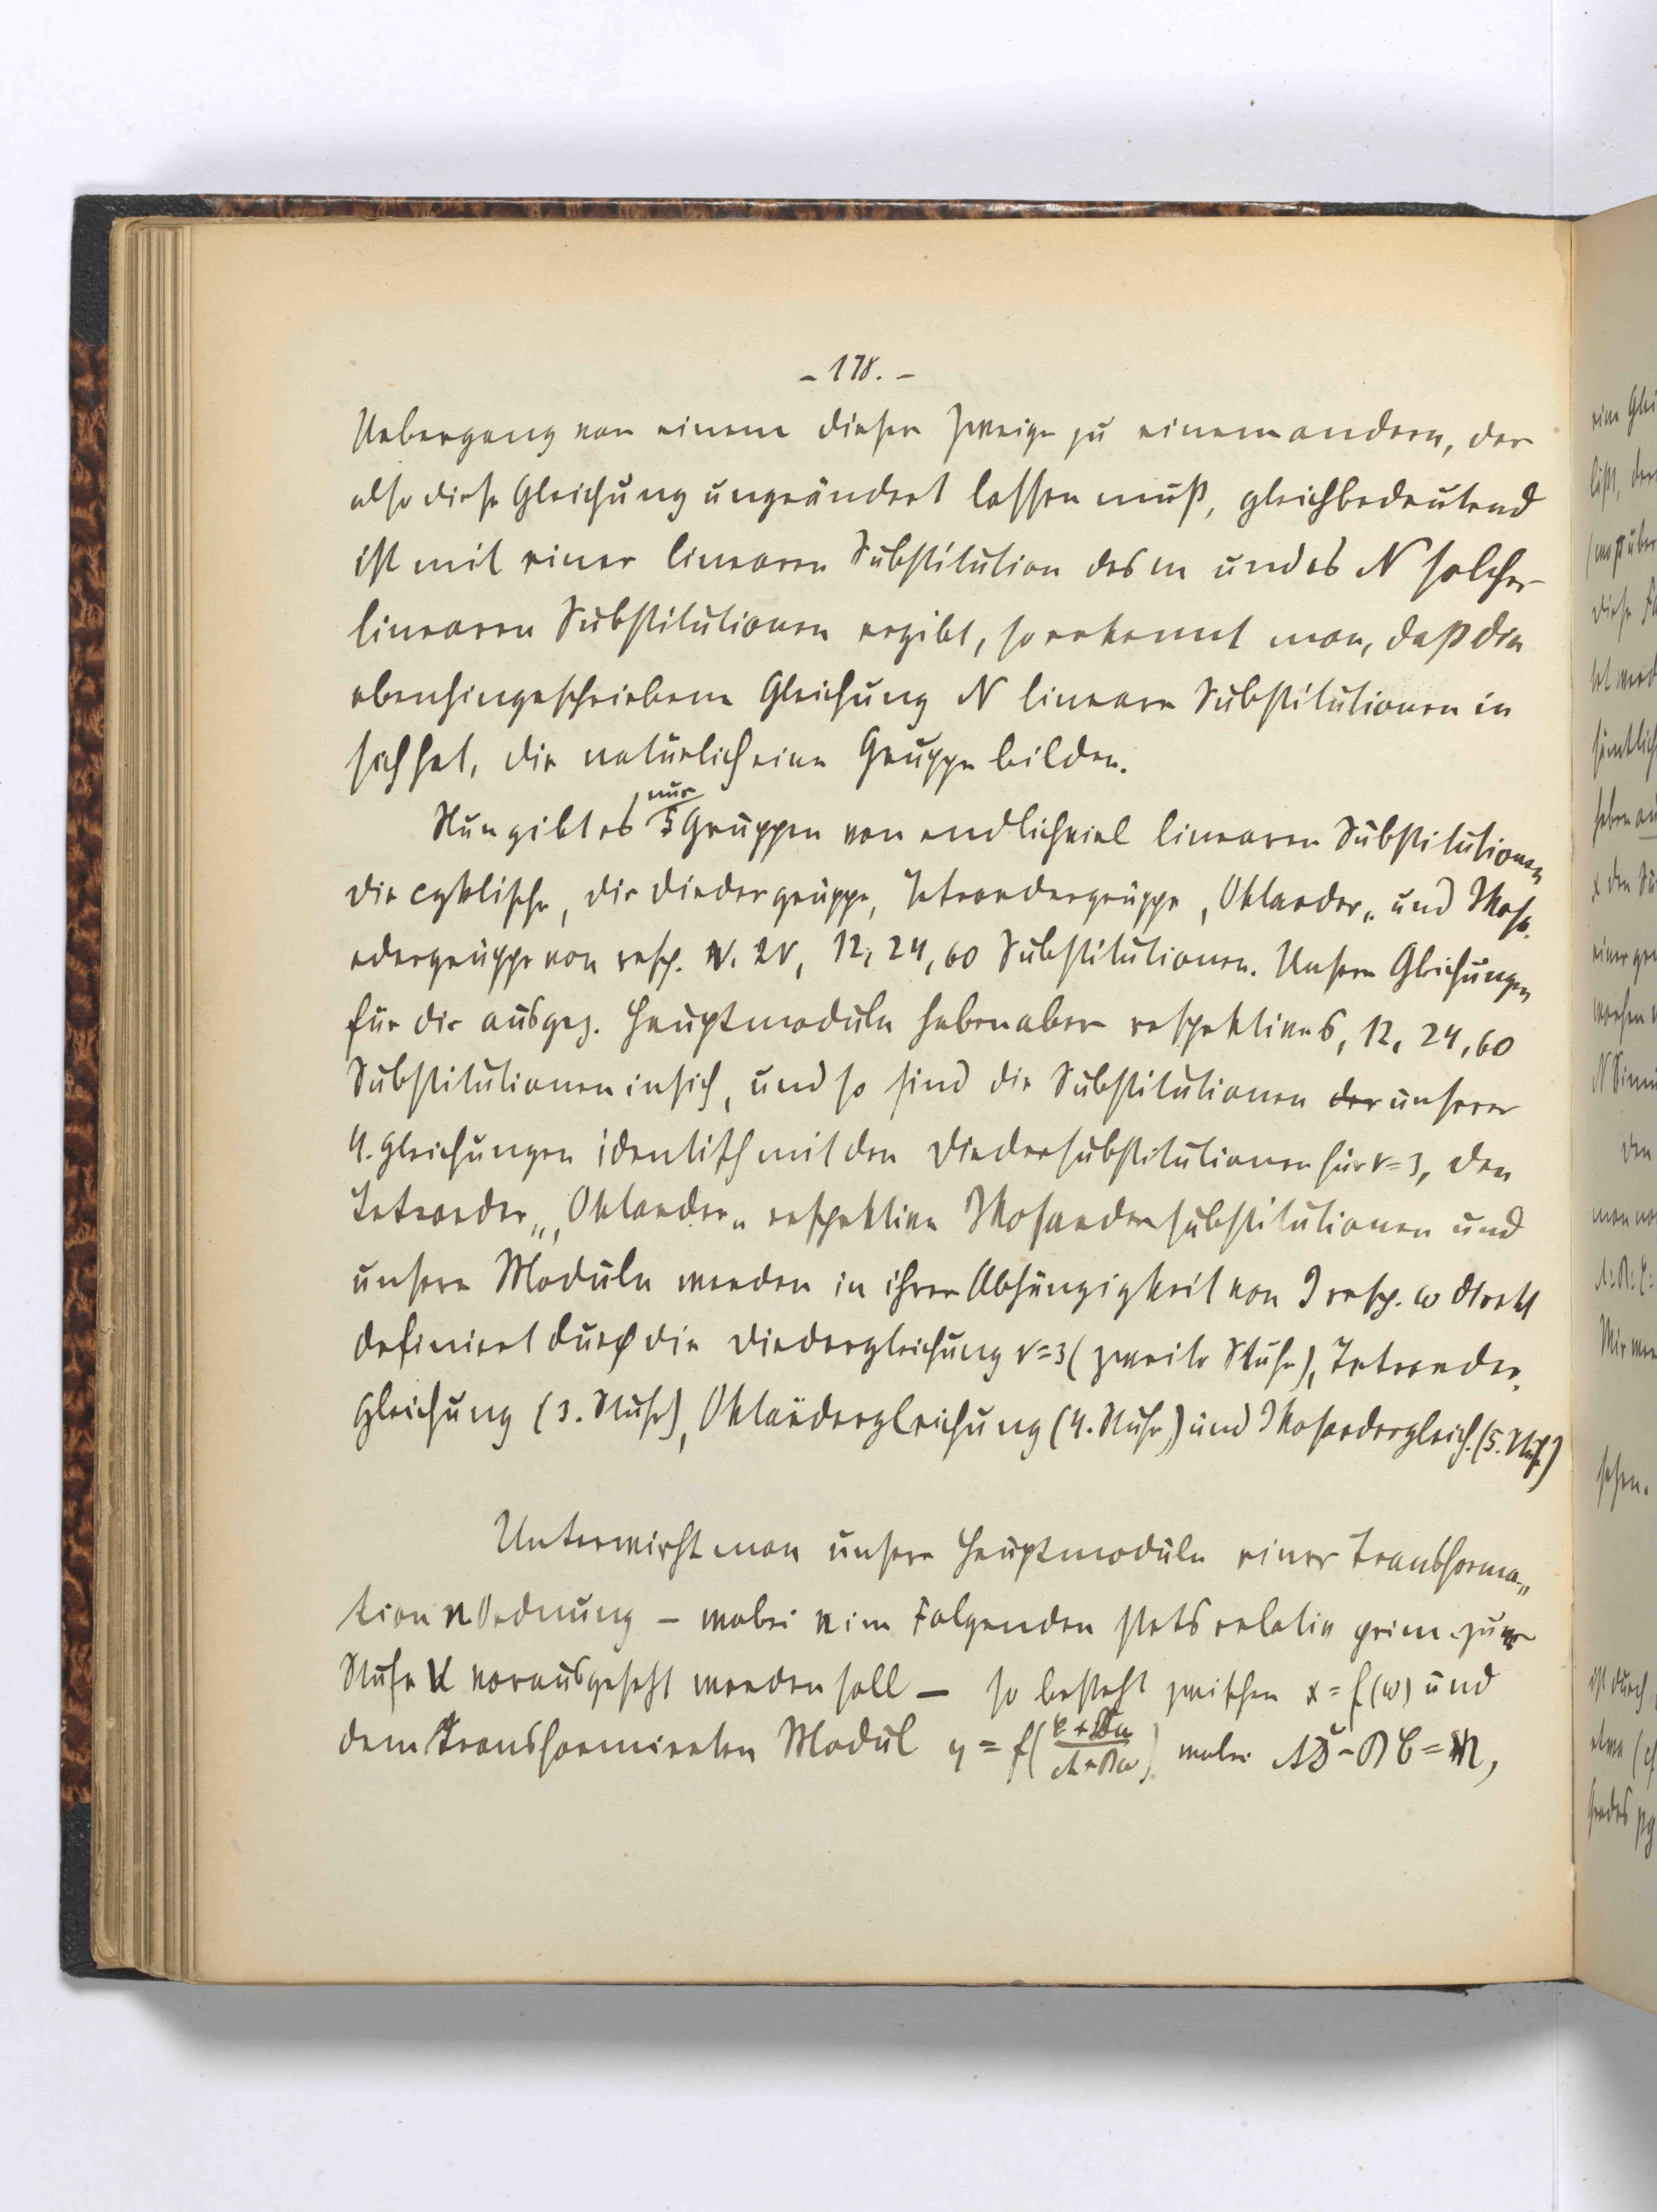 - 178. -
Uebergang von einem dieser Zweige zu einem andern, der
also diese Gleichung ungeändert lassen muß, gleichbedeutend
ist mit einer linearen Substitution des m und es N solcher
linearen Substitutionen ergibt, so erkennt man, daß die
ebenhingeschriebene Gleichung N lineare Substitutionen in
sich hat, die natürlich eine Gruppe bilden.
Nun gibt es nur 5 Gruppen von endlichviel linearen Substitutionen
die cyklische, die Diedergruppe, Tetraedergruppe, Oktaeder„ und Ikosa-
edergruppe von resp. ν, 2ν, 12, 24, 60 Substitutionen. Unsere Gleichungen
für die ausgez. Hauptmoduln haben aber respektive 6, 12, 24, 60
Substitutionen in sich, und so sind die Substitutionen der unserer
4. Gleichungen identisch mit den Diedersubstitutionen für ν=3, den
Tetraeder„, Oktaeder„ respektive Ikosaedersubstitutionen und
unsere Moduln werden in ihrer Abhängigkeit von J resp. ω direkt
definiert durch die Diedergleichung ν=3 (zweite Stufe), Tetraeder-
gleichung (3. Stufe), Oktaëdergleichung (4. Stufe) und Ikosaedergleich. (5. Stufe)
Unterwirft man unsere Hauptmoduln einer Transforma„
tion n Ordnung – wobei n im Folgenden stets relativ prim zur
Stufe vorausgesetzt werden soll – so besteht zwischen x = f(ω) und
dem transformierten Modul y = f((C + Dω)/(A + Bω)) wobei AD - BC = n,